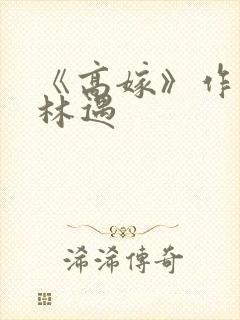 《高嫁》作
林遇
浠浠傳奇